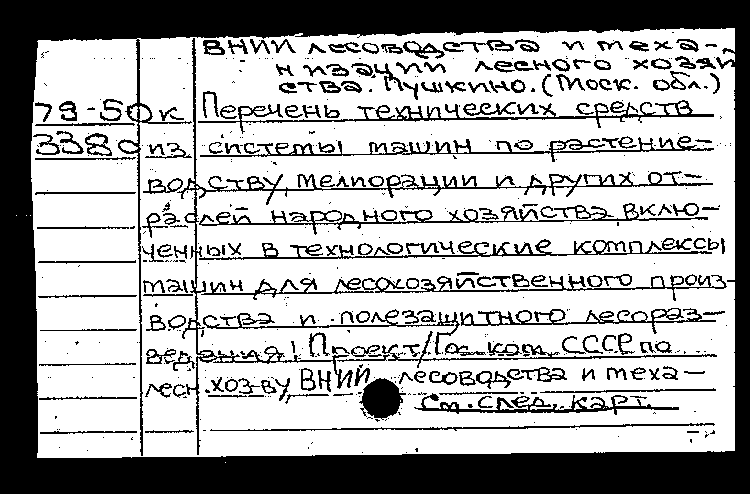 ВНИИ лесоводства и меха-
низации лесного хозяй
ства. Пушкино. (Моск. обл.)
79-50к Перечень технических средств
3380 из системы машин по растение-
водству, мелиорации и других от-
раслей народного хозяйства, вклю-
ченных в технологические комплексы
машин для лесохозяйственного произ-
водства и полезащитного лесораз-
ведения! Проект/Гос. ком. СССР по
лесн. хоз-ву, ВНИИ лесоводства и меха-
См. след. карт.